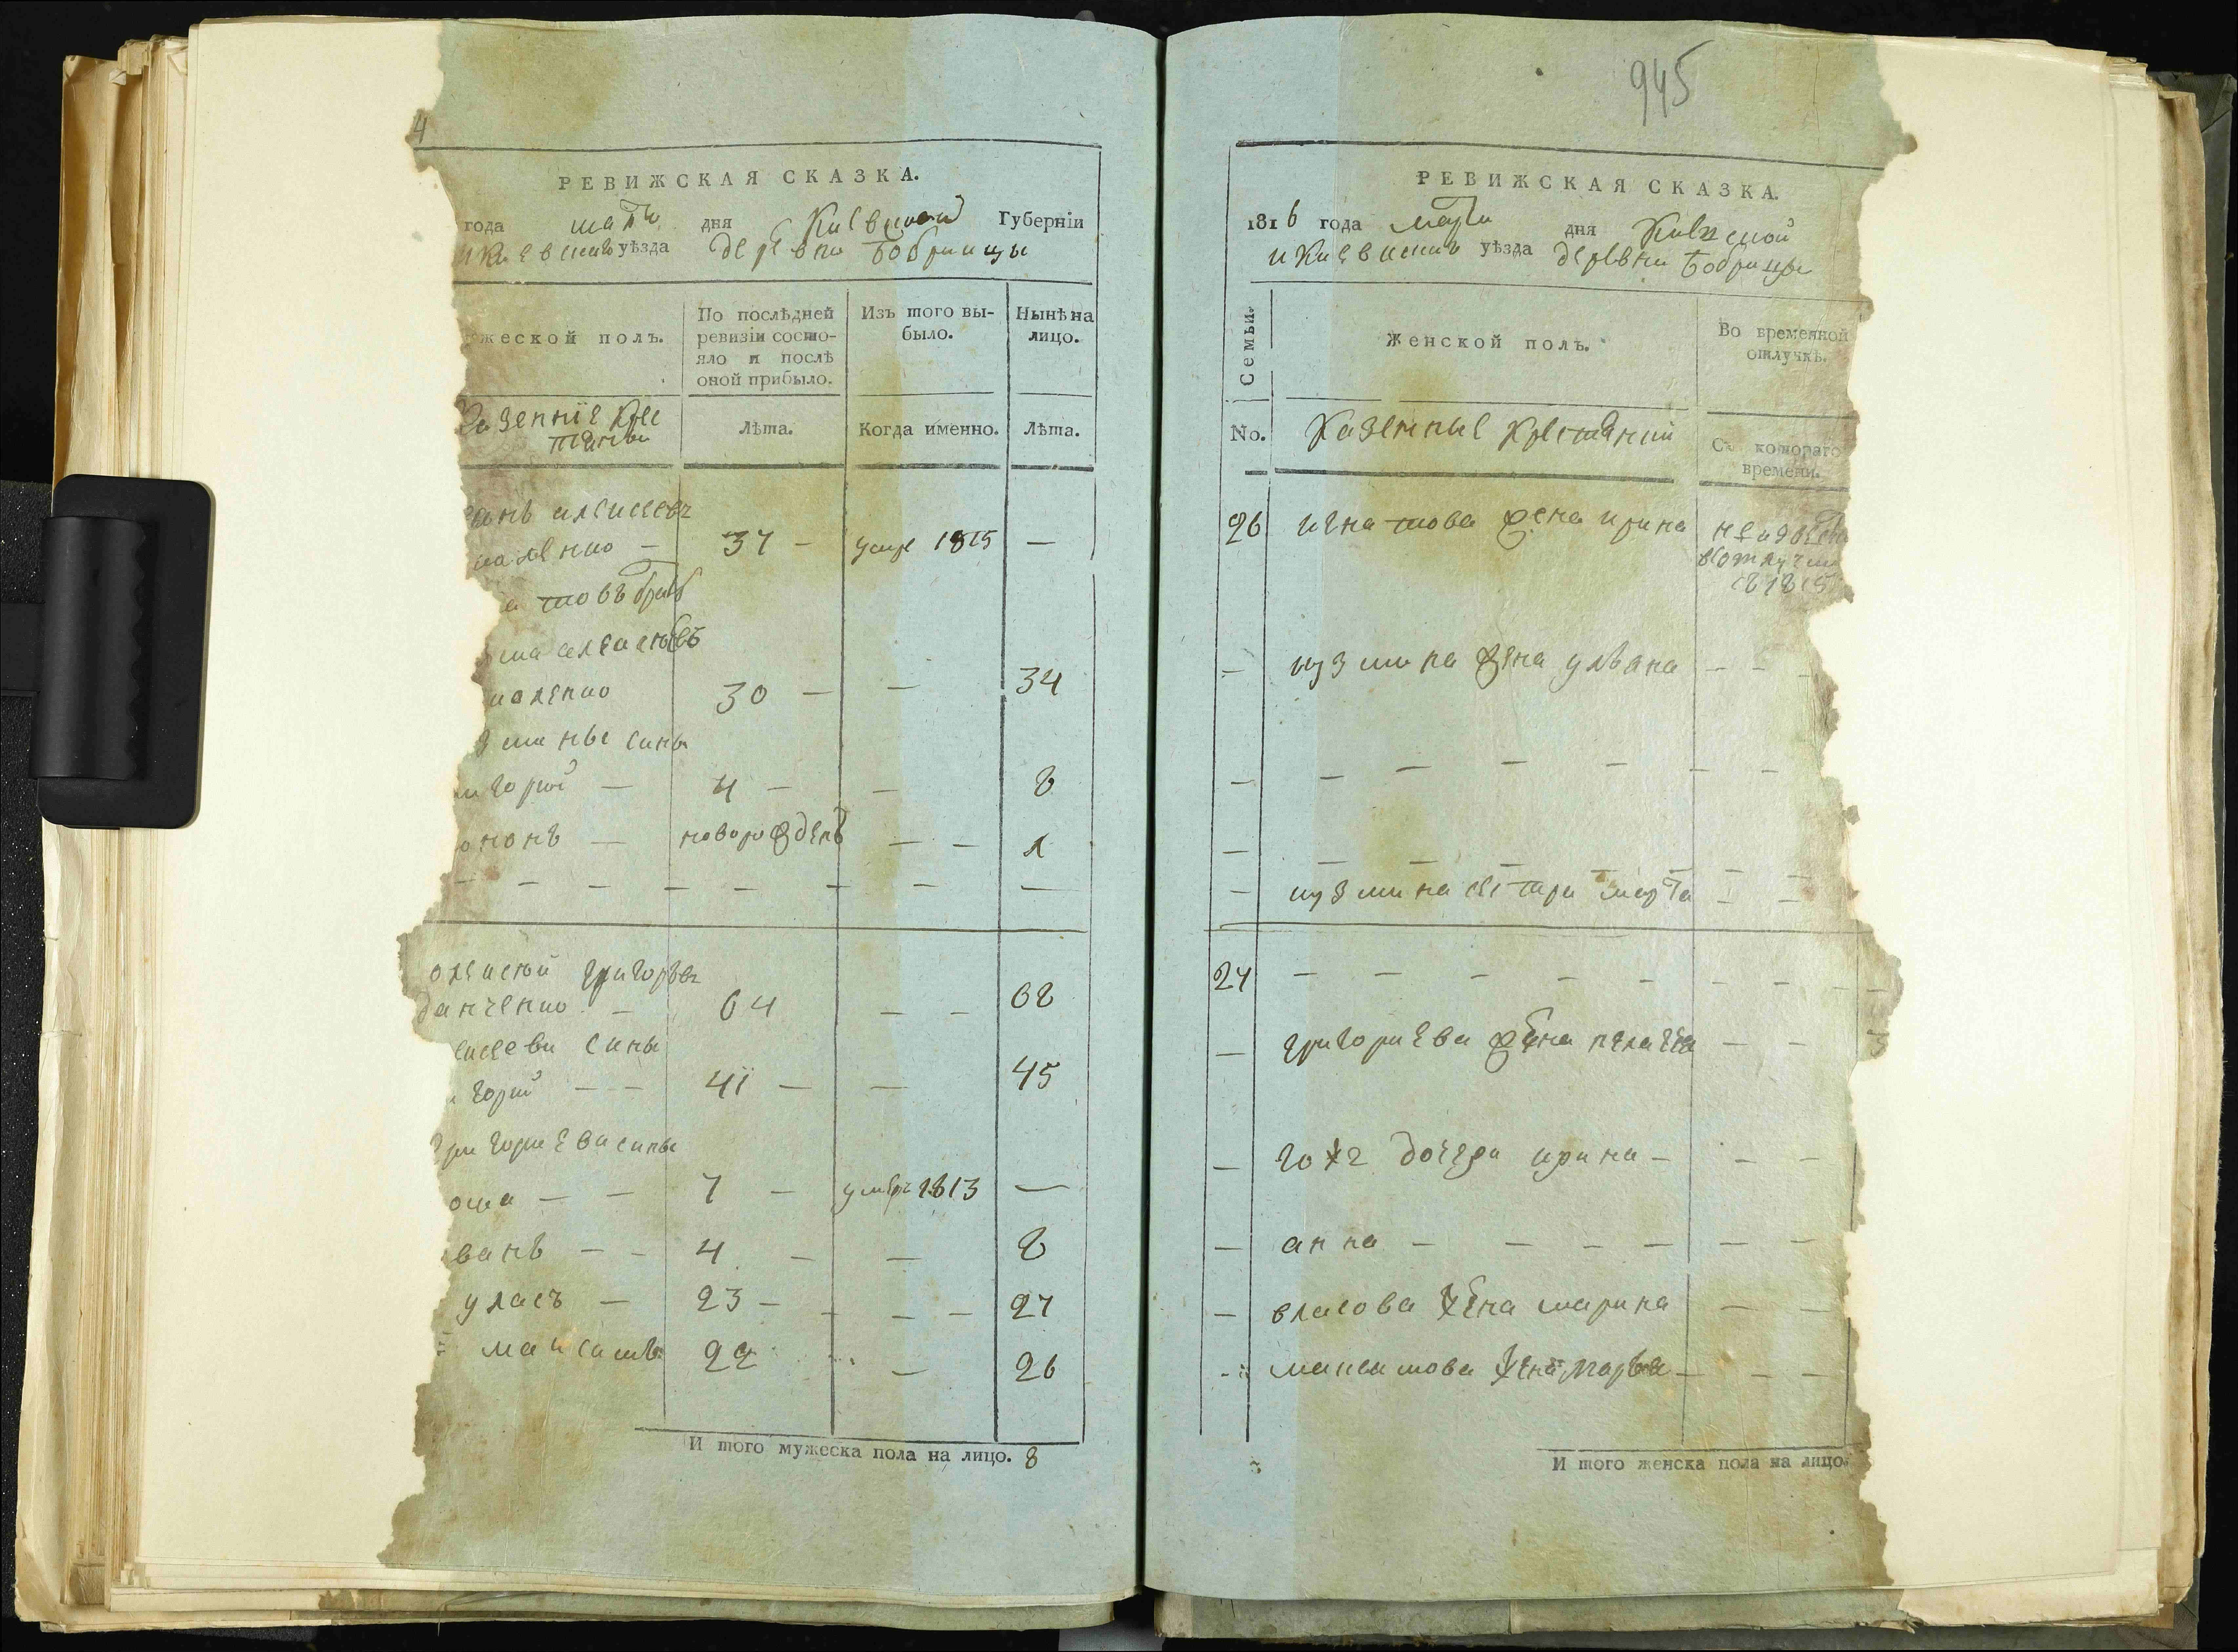 4
РЕВИЖСКАЯ СКАЗКА.
года мата дня Киевской Губерніи
и Киевскаго уѣзда деревни Бобрицы
жеской полъ.
По послѣдней ревизіи состо-
яло и послѣ
оной прибыло.
Изъ того вы-
было.
Нынѣ на
лицо.
Казенніе Крес
тяни
Лѣта.
Когда именно.
Лѣта.
анъ алексеевъ
каленко — 37 — умре 1815 —
а товъ братъ
ма алексеювъ
каленко 30 — — 34
зминые сины
игорий — 4 — — 8
ононъ — новорожденъ — — 1
— — — — — — — —
олексюй григорьевъ
данченко — 64 — — 68
ексееви сины
горий — — 41 — — 45
григориева сины
оша — — 7 — умеръ 1813 —
ванъ — — 4 — — 8
уласъ — 23 — — — — 27
максимъ 22 — 26
И того мужеска пола на лицо. 8
945
РЕВИЖСКАЯ СКАЗКА.
1816 года марта дня Киевской
и Киевскаго уѣзда деревни Бобрицы
Семьи.
Женской полъ.
Во временной
отлучкѣ.
No.
Казенные Крестянки
Съ котораго
времени.
26 игнатова жена ирина
вотлучки
1815
— кузмина жена уляна — — —
— — — — — — —
— — — — — — —
— кузмина сестра марта — —
27 — — — — — — — — —
— григориева жена пелагея — —
— гож дочери ирина — — —
— анна — — — — — —
— власова жена марина — —
— максимова жена марья — — —
И того женска пола на лицо.